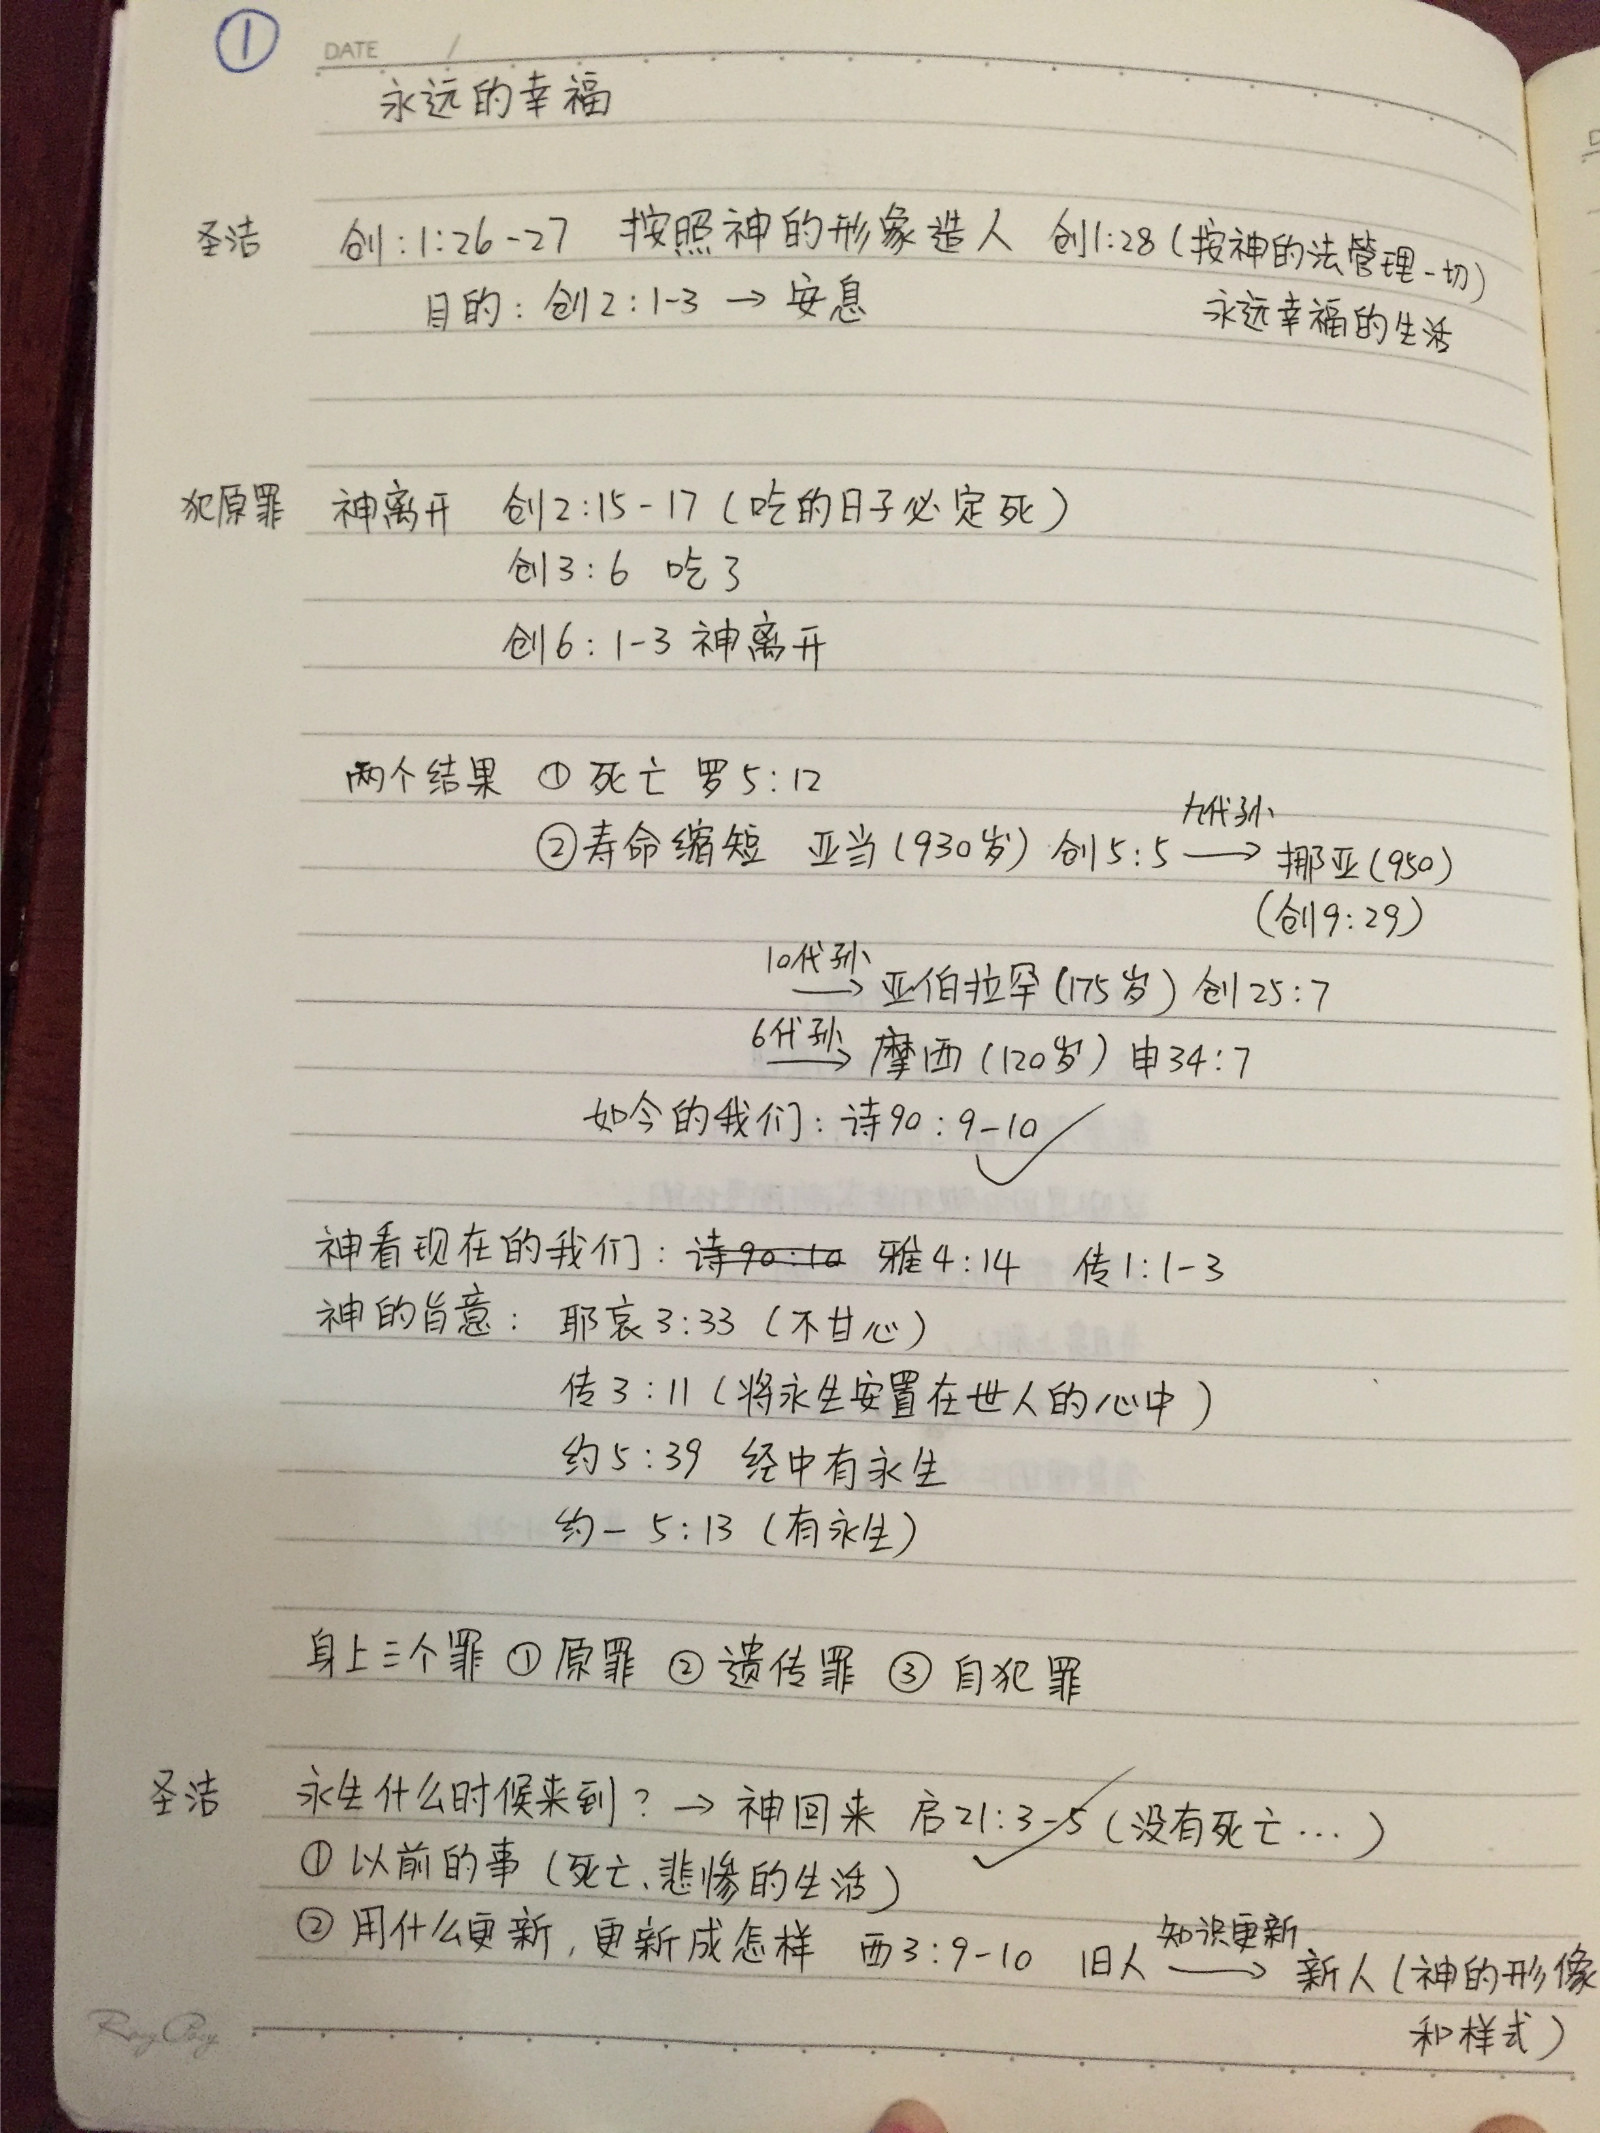 ①
DATE /
永远的幸福
圣洁 创:1:26-27 按照神的形象造人 创1:28(按神的法管理一切)
目的:创2:1-3 → 安息 永远幸福的生活
犯原罪 神离开 创2:15-17(吃的日子必定死)
创3:6 吃了
创6:1-3 神离开
两个结果 ①死亡 罗5:12
九代孙
②寿命缩短 亚当(930岁)创5:5 → 挪亚(950)
(创9:29)
10代孙
→ 亚伯拉罕(175岁)创25:7
6代孙
→ 摩西(120岁)申34:7
如今的我们:诗90:9-10 ✓
神看现在的我们:诗90:10 雅4:14 传1:1-3
神的旨意:耶哀3:33(不甘心)
传3:11(将永生安置在世人的心中)
约5:39 经中有永生
约一5:13(有永生)
身上三个罪 ①原罪 ②遗传罪 ③自犯罪
圣洁 永生什么时候来到?→ 神回来 启21:3-5(没有死亡…) ✓
①以前的事(死亡、悲惨的生活)
知识更新
②用什么更新,更新成怎样 西3:9-10 旧人 → 新人(神的形像
和样式)